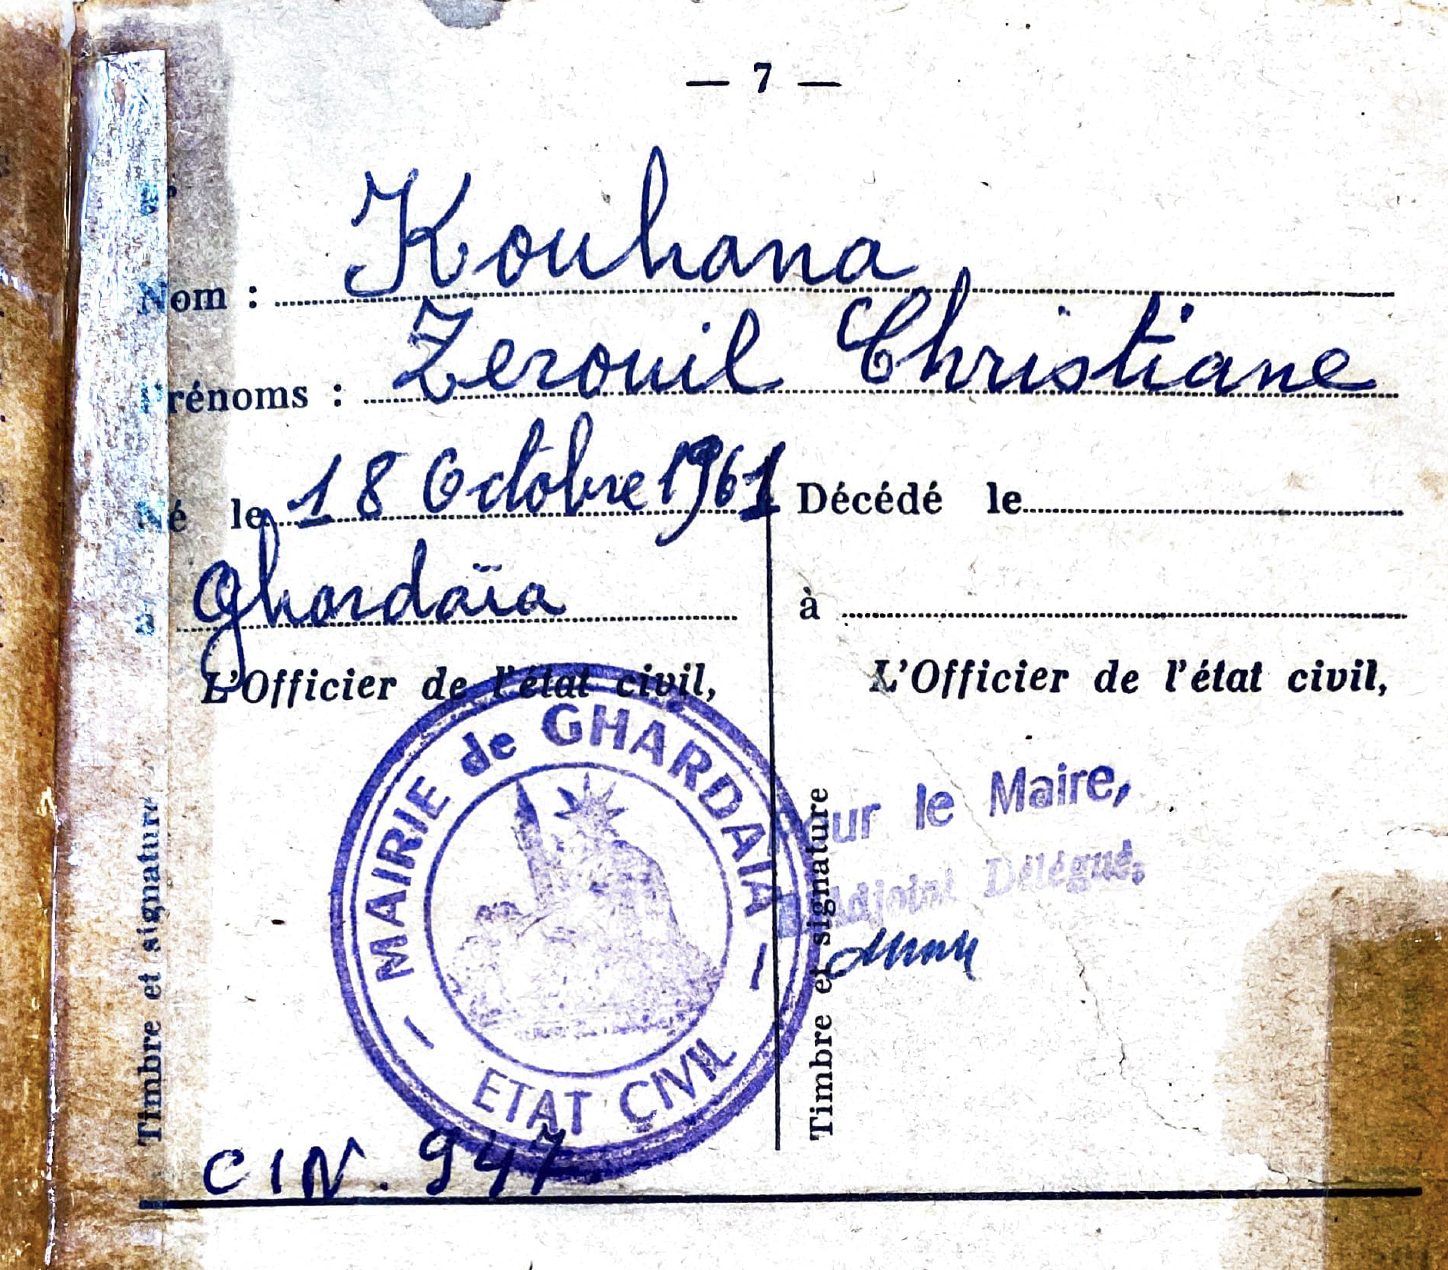 — 7 —
Nom : Kouhana
Prénoms : Zerouil Christiane
Né le 18 Octobre 1961
Ghardaïa
L'Officier de l'état civil,
MAIRIE de GHARDAÏA
ETAT CIVIL
Timbre et signature
CIN. 947
Décédé le
à
L'Officier de l'état civil,
Pour le Maire,
Adjoint Délégué,
Timbre et signature